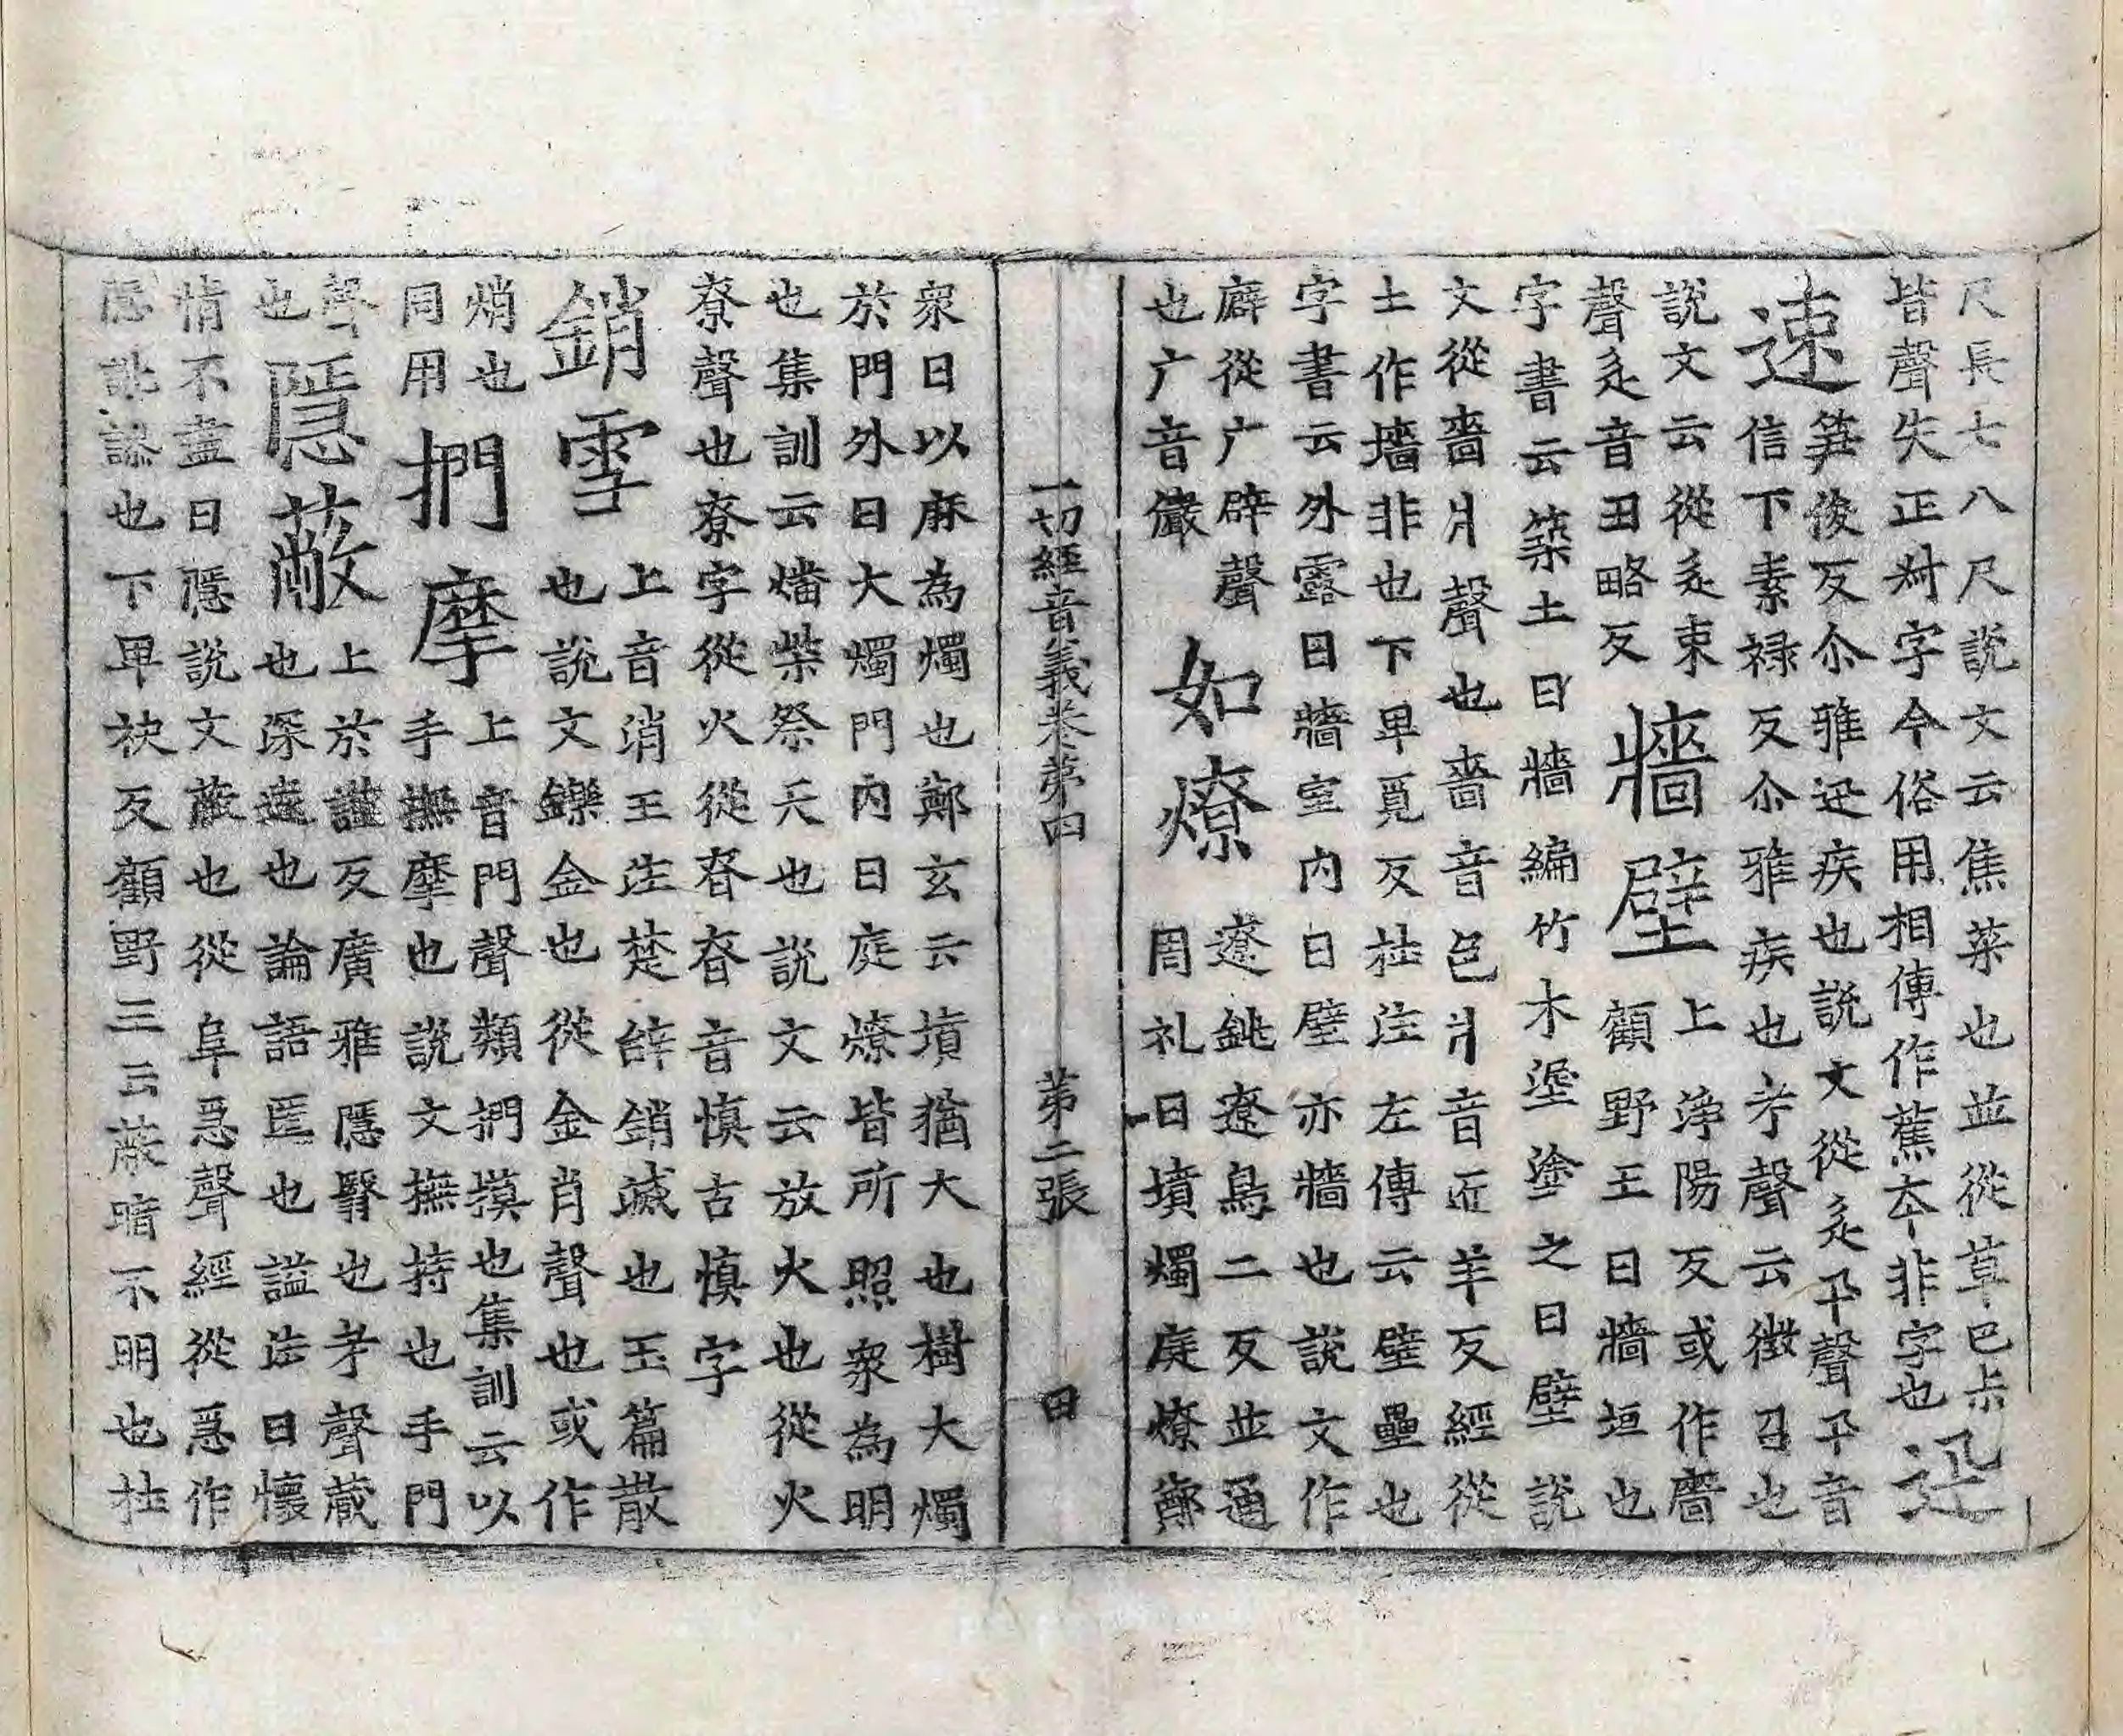 尺長七八尺說文云焦菜也並從草巳上
皆聲失正尗字今俗用相傳作蕉夲非字也
迅
速
笋俊反尒雅迅疾也說文從辵卂聲卂音
信下素禄反尒雅疾也考聲云徵召也
說文云從辵束
聲辵音丑略反
牆壁
上淨陽反或作廧
顧野王曰牆垣也
字書云築土曰牆編竹木埿塗之曰壁說
文從嗇爿聲也嗇音色爿音匠羊反經從
土作墻非也下卑覓反杜注左傳云壁壘也
字書云外露曰牆室內曰壁亦牆也說文作
廦從广辟聲
也广音儼
如燎
遼銚遼鳥二反並通
周礼曰墳燭庭燎鄭
一切經音義卷第四 第二張 田
眾曰以麻為燭也鄭玄云墳猶大也樹大燭
於門外曰大燭門內曰庭燎皆所照眾為明
也集訓云燔柴祭天也說文云放火也從火
尞聲也尞字從火從昚昚音慎古慎字
銷雪
上音消王注楚辭銷滅也玉篇散
也說文鑠金也從金肖聲也或作
焇也
同用
捫摩
上音門聲類捫摸也集訓云以
手撫摩也說文撫持也手門
聲
也
隱蔽
上於謹反廣雅隱翳也考聲藏
也深遠也論語匿也謚法曰懷
情不盡曰隱說文蔽也從阜㥯聲經從㥯作
隱訛謬也下卑袂反顧野王云蔽暗不明也杜